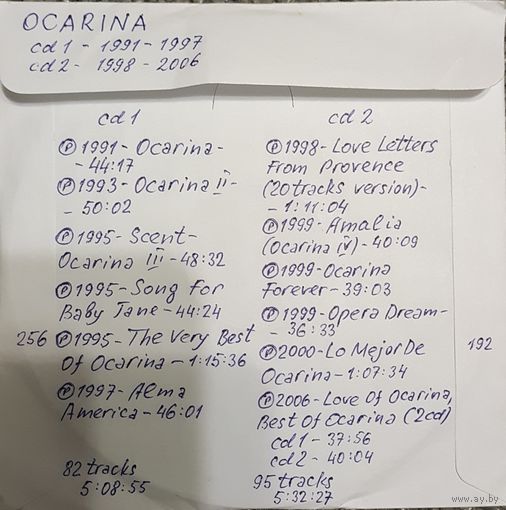 OCARINA
cd1 - 1991 - 1997
cd2 - 1998 - 2006
cd1
Ⓟ 1991 - Ocarina -
- 44:17
Ⓟ 1993 - Ocarina II -
- 50:02
Ⓟ 1995 - Scent -
Ocarina III - 48:32
Ⓟ 1995 - Song for
Baby Jane - 44:24
256 Ⓟ 1995 - The Very Best
Of Ocarina - 1:15:36
Ⓟ 1997 - Alma
America - 46:01
82 tracks
5:08:55
cd2
Ⓟ 1998 - Love Letters
From Provence
(20 tracks version) -
- 1:11:04
Ⓟ 1999 - Amalia
(Ocarina IV) - 40:09
Ⓟ 1999 - Ocarina
Forever - 39:03
Ⓟ 1999 - Opera Dream -
- 36:33
Ⓟ 2000 - Lo Mejor De
Ocarina - 1:07:34
192
Ⓟ 2006 - Love Of Ocarina,
Best Of Ocarina (2cd)
cd1 - 37:56
cd2 - 40:04
95 tracks
5:32:27
www.ay.by